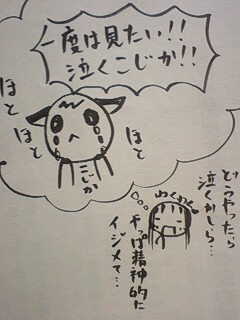 一度は見たい!!
泣くこじか!!
ほと
ほと
ほと
こじか
どうやったら
泣くかしら…
わくわく
やっぱ精神的に
イジメて…